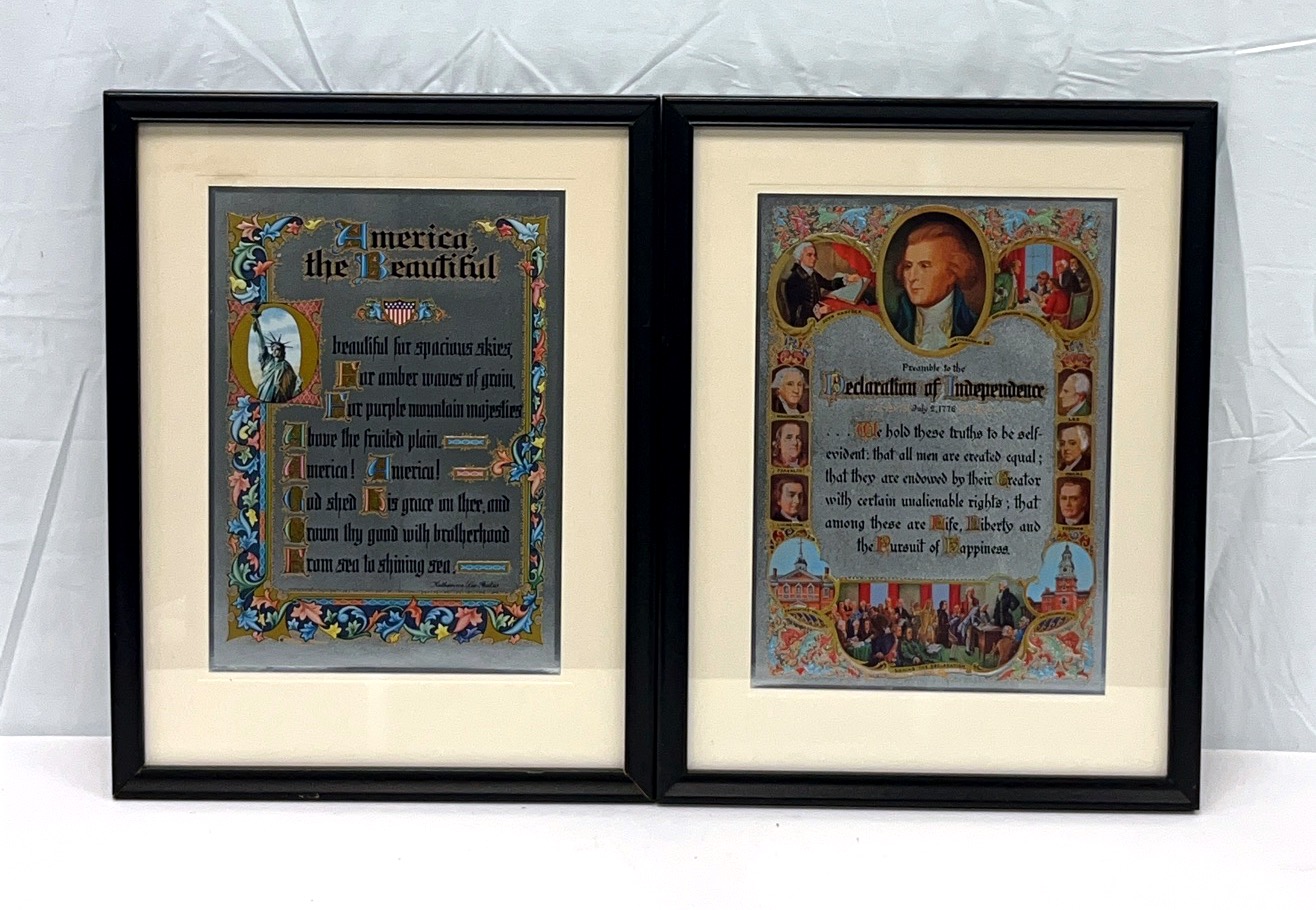 America,
the Beautiful
O beautiful for spacious skies,
For amber waves of grain,
For purple mountain majesties
Above the fruited plain.
America! America!
God shed His grace on thee, and
Crown thy good with brotherhood
From sea to shining sea.
Katharine Lee Bates
HANCOCK
JEFFERSON
Preamble to the
Declaration of Independence
July 2, 1776
. . . We hold these truths to be self-
evident: that all men are created equal;
that they are endowed by their Creator
with certain unalienable rights; that
among these are Life, Liberty and
the Pursuit of Happiness.
FRANKLIN
LEE
SIGNING THE DECLARATION